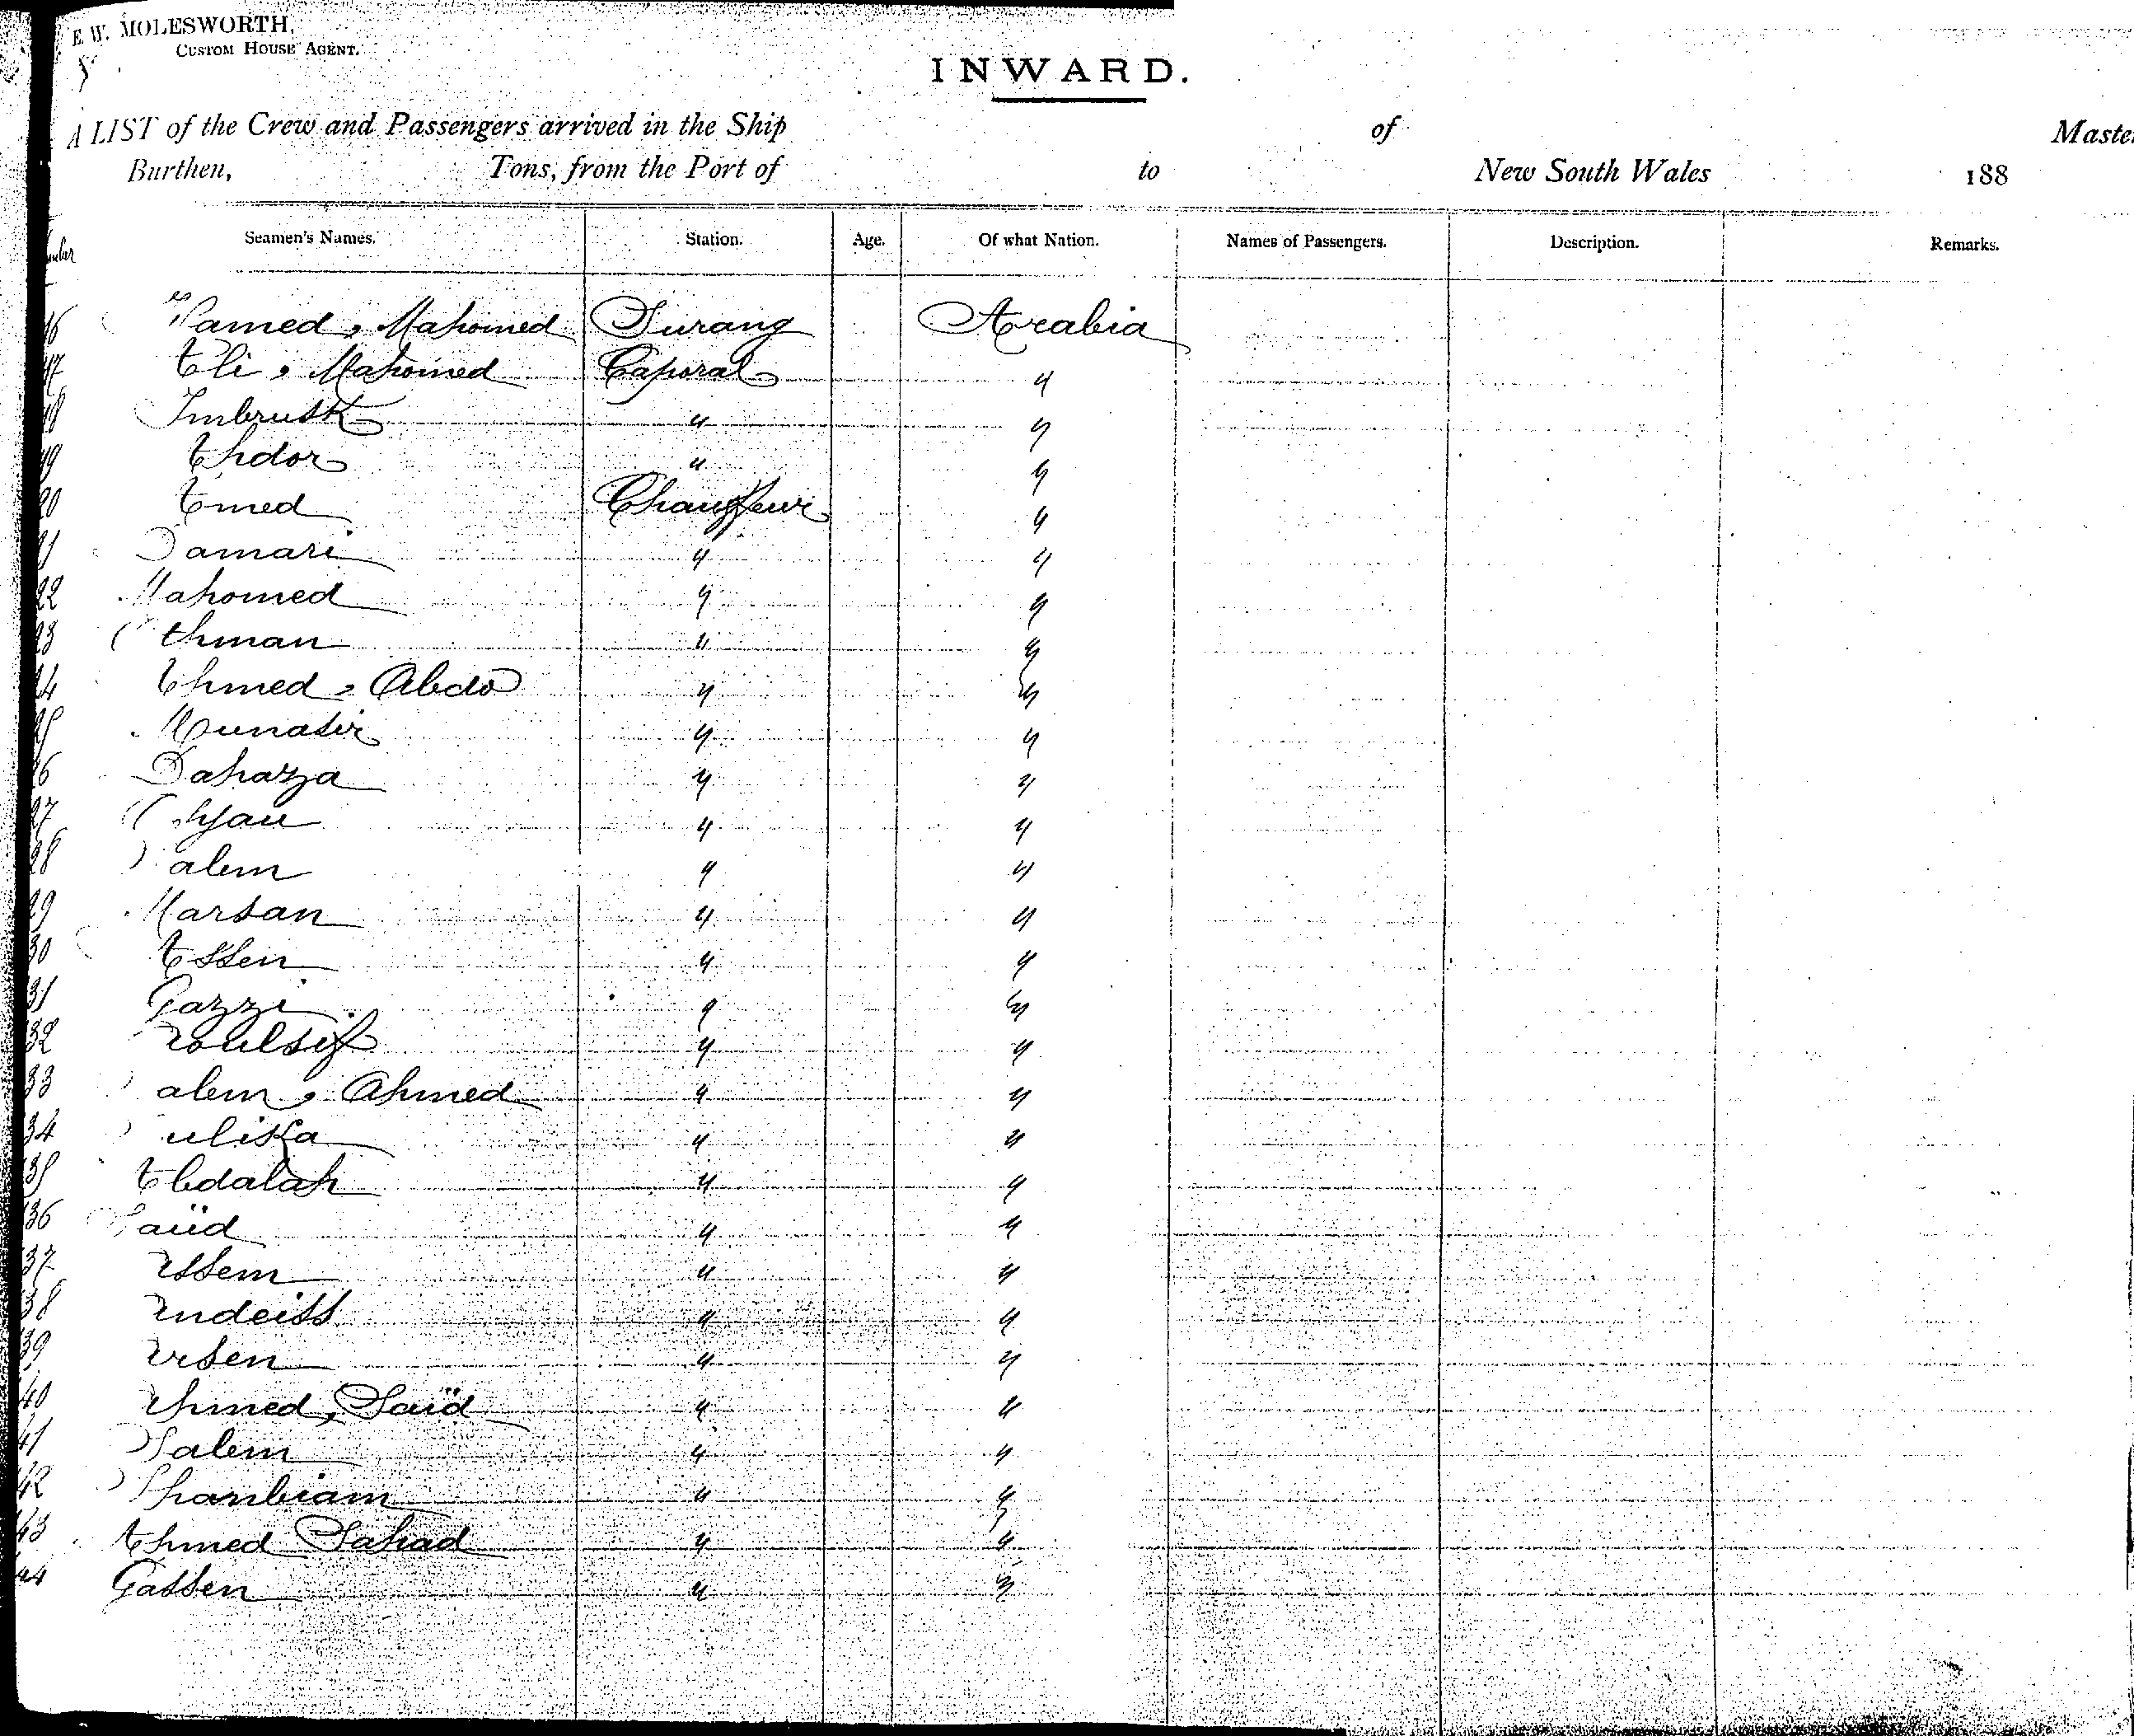 E. W. MOLESWORTH,
CUSTOM HOUSE AGENT.
INWARD.
A LIST of the Crew and Passengers arrived in the Ship of Master
Burthen, Tons, from the Port of to New South Wales 188
Seamen's Names. Station. Age. Of what Nation. Names of Passengers. Description. Remarks.
Hamed, Mahomed Surang Arabia
17 Ali, Mahomed Caporal "
18 Imbrusk " "
19 Ahdor " "
20 Amed Chauffeur "
21 Damari " "
22 Mahomed " "
23 Othman " "
24 Ahmed, Abdo " "
25 Munasir " "
26 Dahazza " "
27 " "
28 Salem " "
29 Marsan " "
30 Assen " "
31 Gazzi " "
32 " "
33 Salem, Ahmed " "
34 " "
35 Abdalah " "
36 Saïd " "
37 Assem " "
38 Andeiss " "
39 Arsen " "
40 Ahmed, Saïd " "
41 Salem " "
42 " "
43 Ahmed Sahad " "
44 Gassen " "